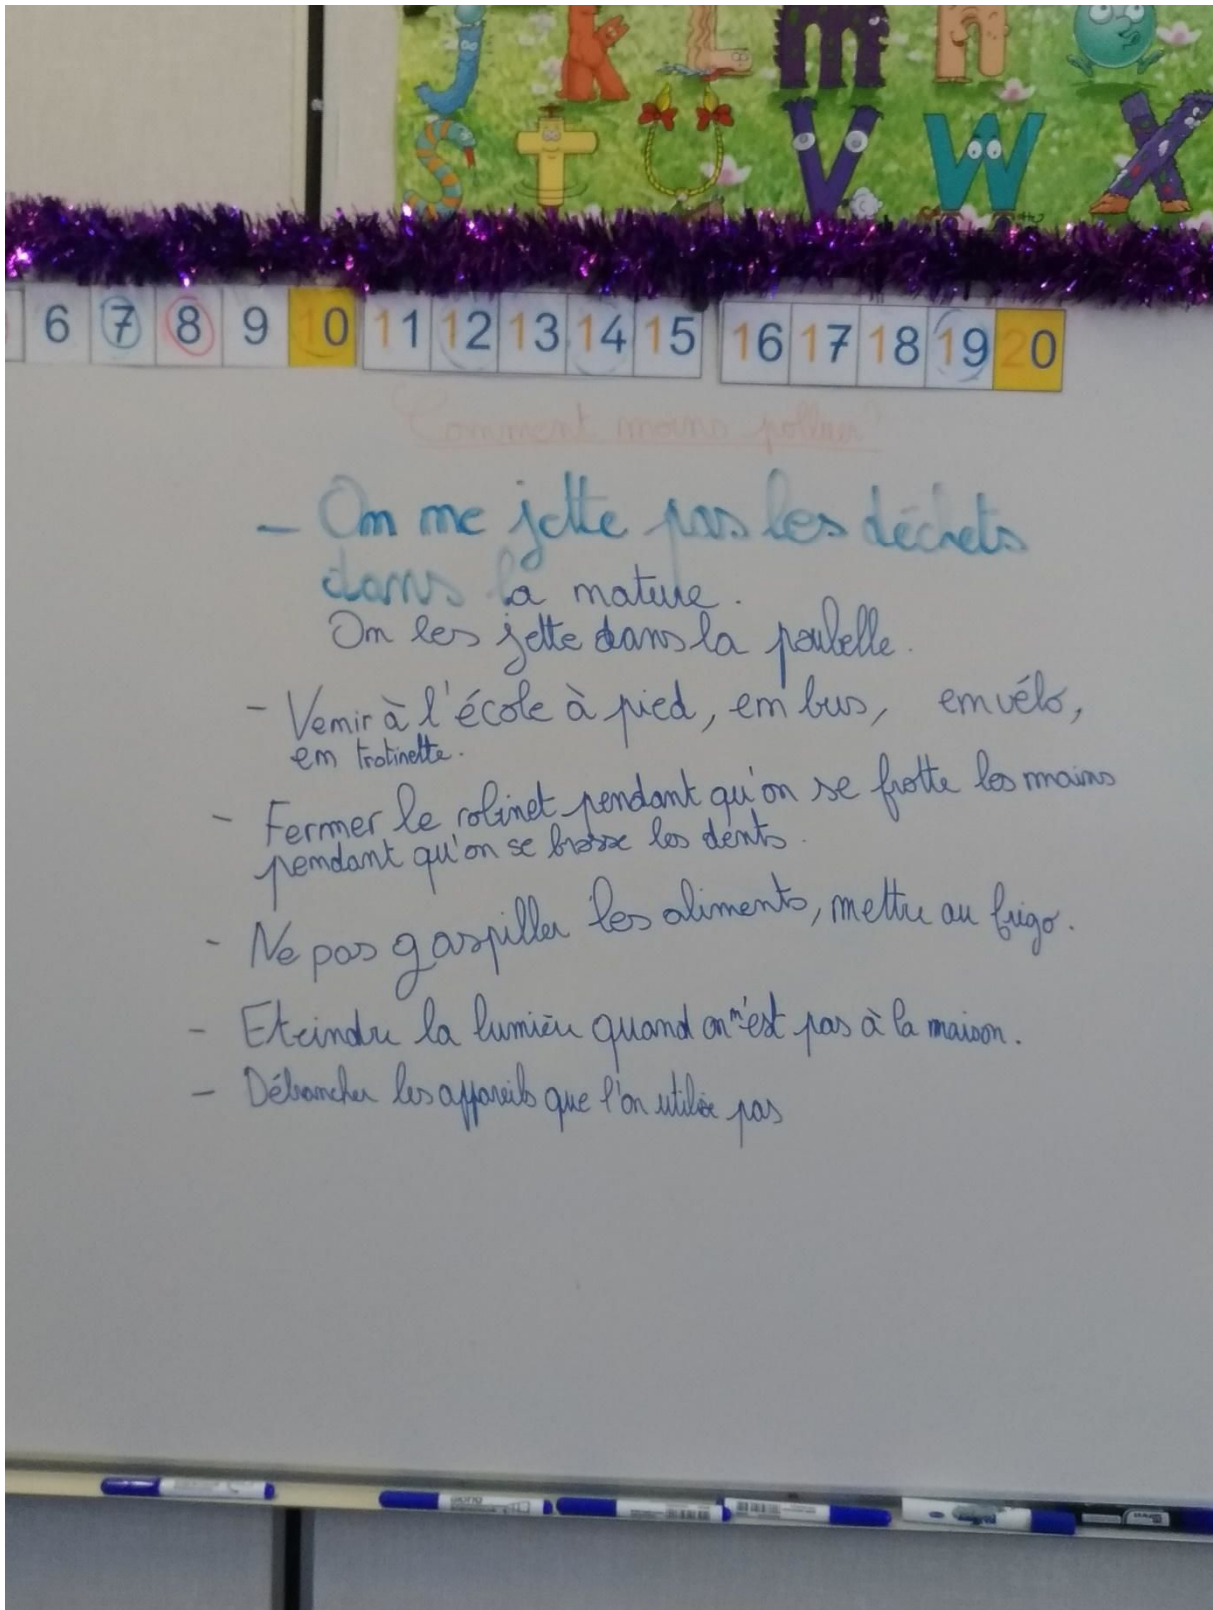 j k l m n o
s t u v w x
6 7 8 9 10 11 12 13 14 15 16 17 18 19 20
Comment moins polluer?
- On ne jette pas les déchets
dans la nature.
On les jette dans la poubelle.
- Venir à l'école à pied, en bus, en vélo,
en trotinette.
- Fermer le robinet pendant qu'on se frotte les mains
pendant qu'on se brosse les dents.
- Ne pas gaspiller les aliments, mettre au frigo.
- Eteindre la lumière quand on n'est pas à la maison.
- Débrancher les appareils que l'on utilise pas